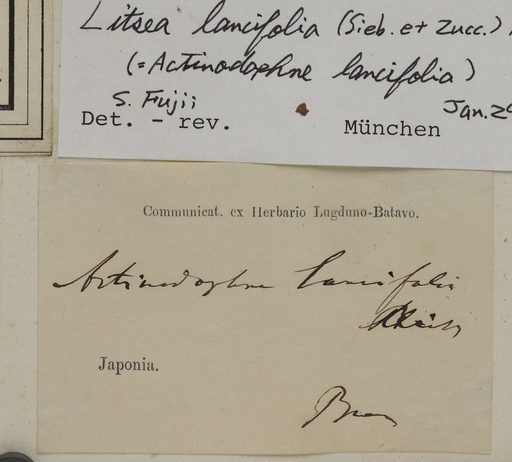 Litsea lancifolia (Sieb. et Zucc.)
(= Actinodaphne lancifolia)
S. Fujii
Det. - rev. München Jan.
Communicat. ex Herbario Lugduno-Batavo.
Actinodaphne lancifolia
Japonia.